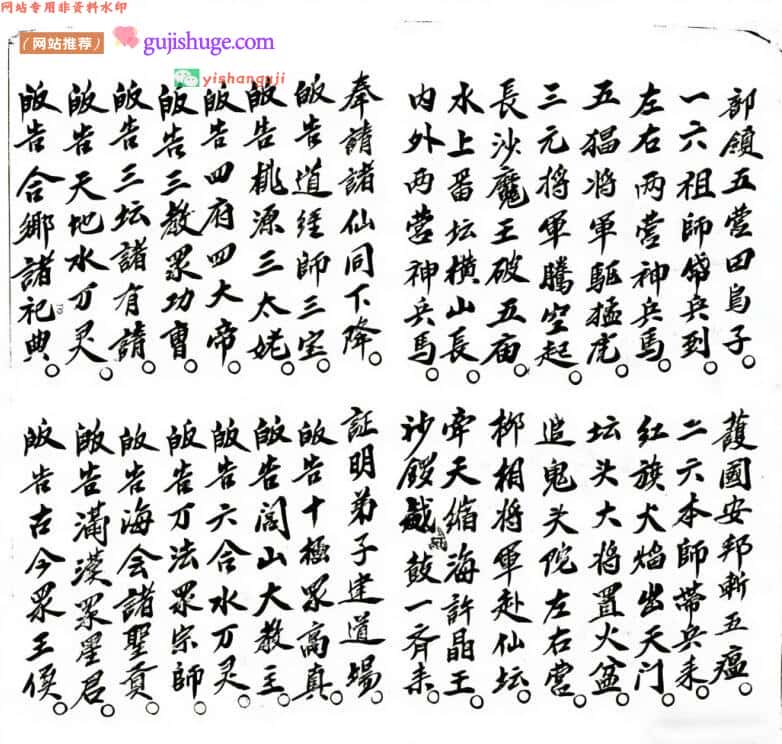 网站专用非资料水印
（网站推荐） gujishuge.com
yishanguji
部領五营田烏子
護國安邦斬五瘟
一六祖師帶兵到
二六本師帶兵来
左右两营神兵馬
红旗火焰出天门
五猖将軍駈猛虎
坛头大将置火盆
三元将軍騰空起
追鬼头陀左右营
長沙魔王破五庙
柳相将軍赴仙坛
水上番坛横山長
牵天缩海許晶王
内外两营神兵馬
沙鑼鼓一齐来
奉請諸仙同下降
証明弟子建道場
皈告道経師三宝
皈告十極眾高真
皈告桃源三太姥
皈告闾山大教主
皈告四府四大帝
皈告六合水万灵
皈告三教眾功曹
皈告万法眾宗師
皈告三坛諸有請
皈告海会諸聖賢
皈告天地水万灵
皈告滿漢眾星君
皈告合鄉諸祀典
皈告古今眾王侯